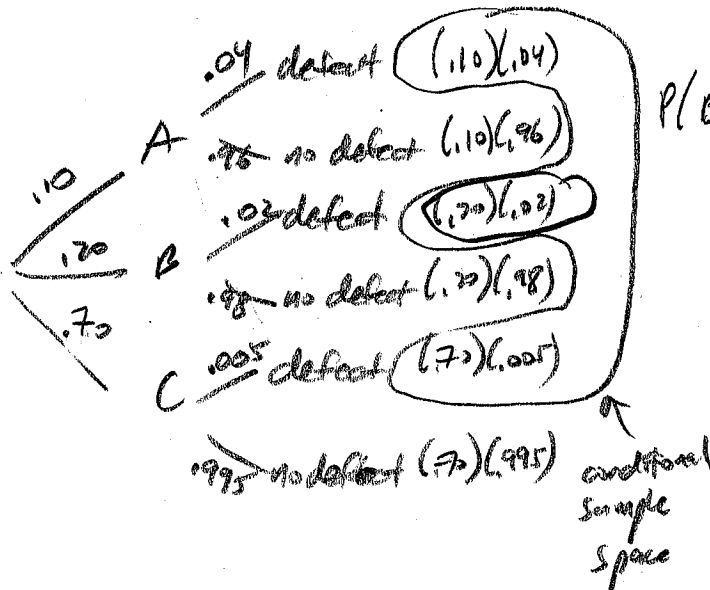 .04 defect (.10)(.04)
P(B
A
.96 no defect (.10)(.96)
.10
.02 defect (.20)(.02)
.20
B
.98 no defect (.20)(.98)
.70
.005 defect (.70)(.005)
C
.995 no defect (.70)(.995)
conditional
sample
space